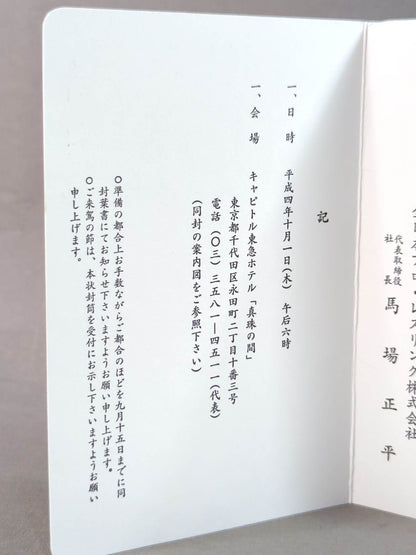 リング株式会社
代表取締役
社長
馬場正平
記
一、日時　平成四年十月一日(木)　午后六時
一、会場　キャピトル東急ホテル「真珠の間」
東京都千代田区永田町二丁目十番三号
電話(〇三)三五八一―四五一一(代表)
(同封の案内図をご参照下さい)
○準備の都合上お手数ながらご都合のほどを九月十五日までに同
封葉書にてお知らせ下さいますようお願い申し上げます。
○ご来駕の節は、本状封筒を受付にお示し下さいますようお願い
申し上げます。